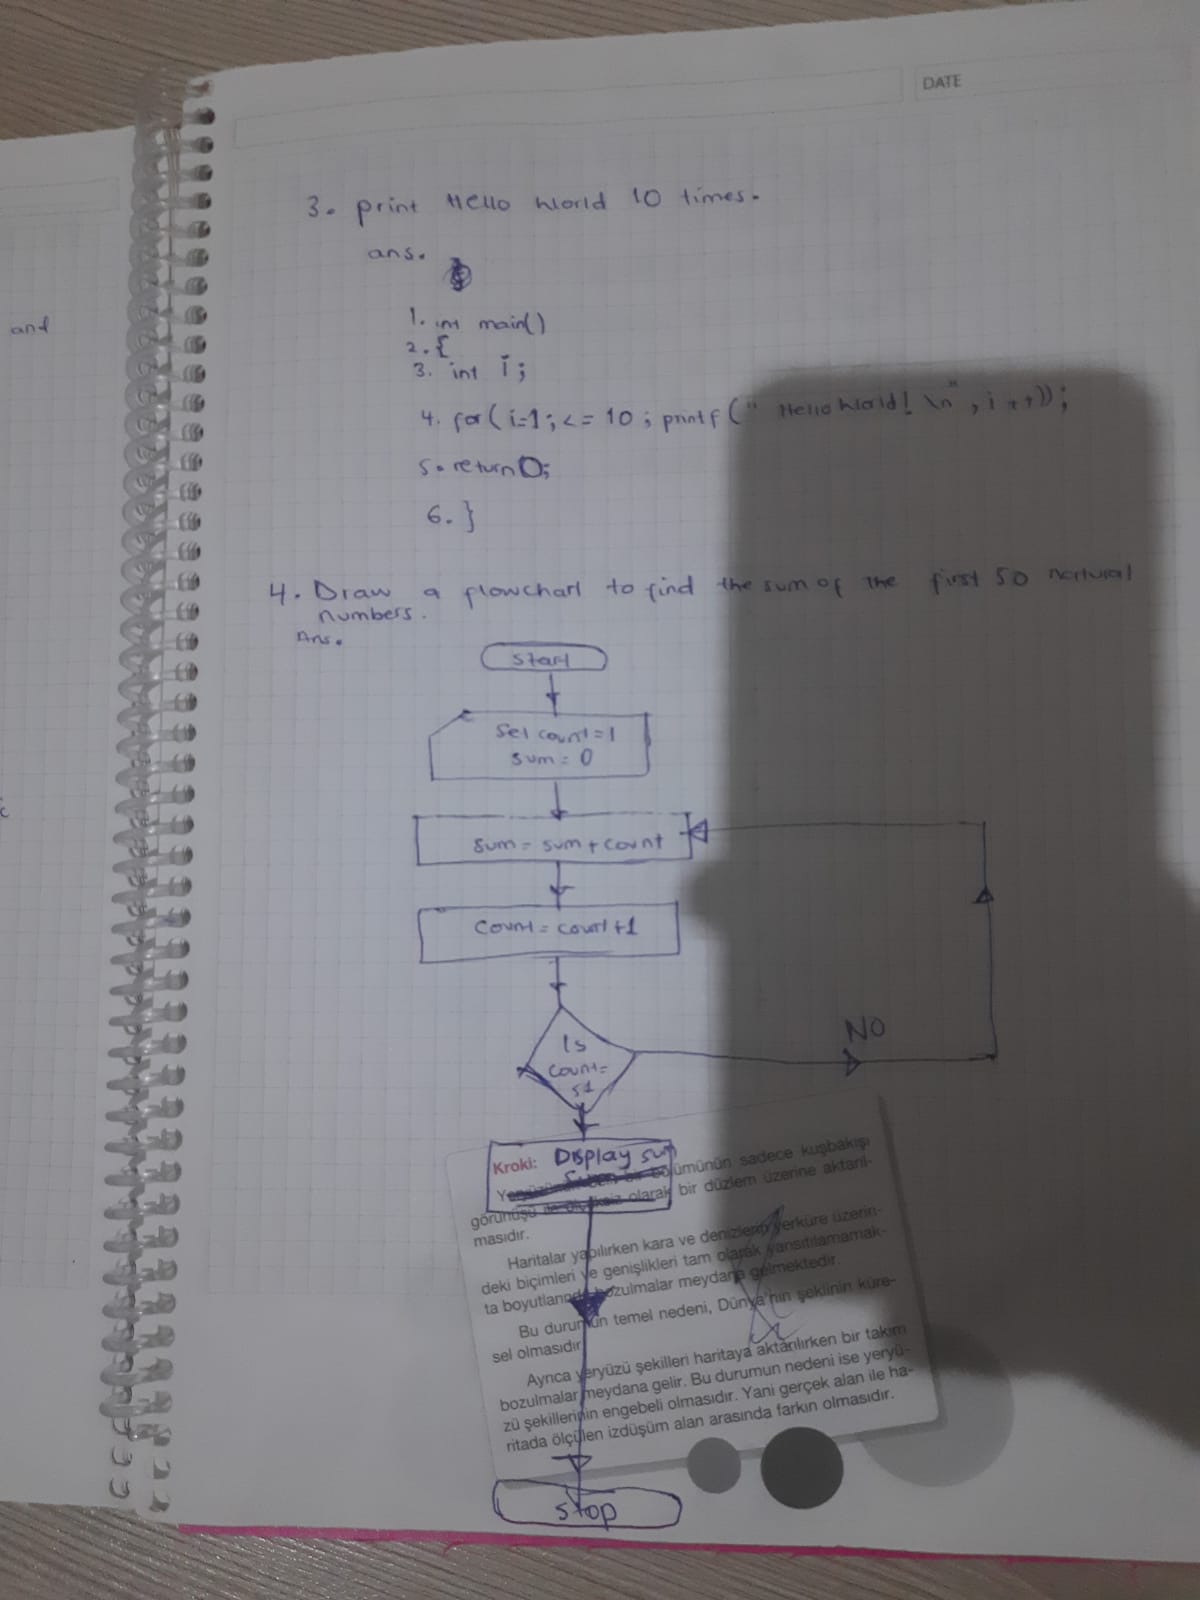 DATE
3. print Hello World 10 times.
ans.
and
1. int main()
2. {
3. int i;
4. for( i=1; <= 10 ; printf (" Hello World! \n" , i ++));
5. return 0;
6. }
4. Draw a flowchart to find the sum of the first 50 nartural
numbers.
Ans.
Start
Set count=1
sum = 0
sum = sum + count
Count = count +1
Is
count=
51
NO
Display sum
Kroki:
bir bölümünün sadece kuşbakışı
görünüşü olarak bir düzlem üzerine aktarıl-
masıdır.
Haritalar yapılırken kara ve denizlerin yerküre üzerin-
deki biçimleri ve genişlikleri tam olarak yansıtılamamak-
ta boyutlarında bozulmalar meydana gelmektedir.
Bu durumun temel nedeni, Dünya'nın şeklinin küre-
sel olmasıdır.
Ayrıca yeryüzü şekilleri haritaya aktarılırken bir takım
bozulmalar meydana gelir. Bu durumun nedeni ise yeryü-
zü şekillerinin engebeli olmasıdır. Yani gerçek alan ile ha-
ritada ölçülen izdüşüm alan arasında farkın olmasıdır.
stop